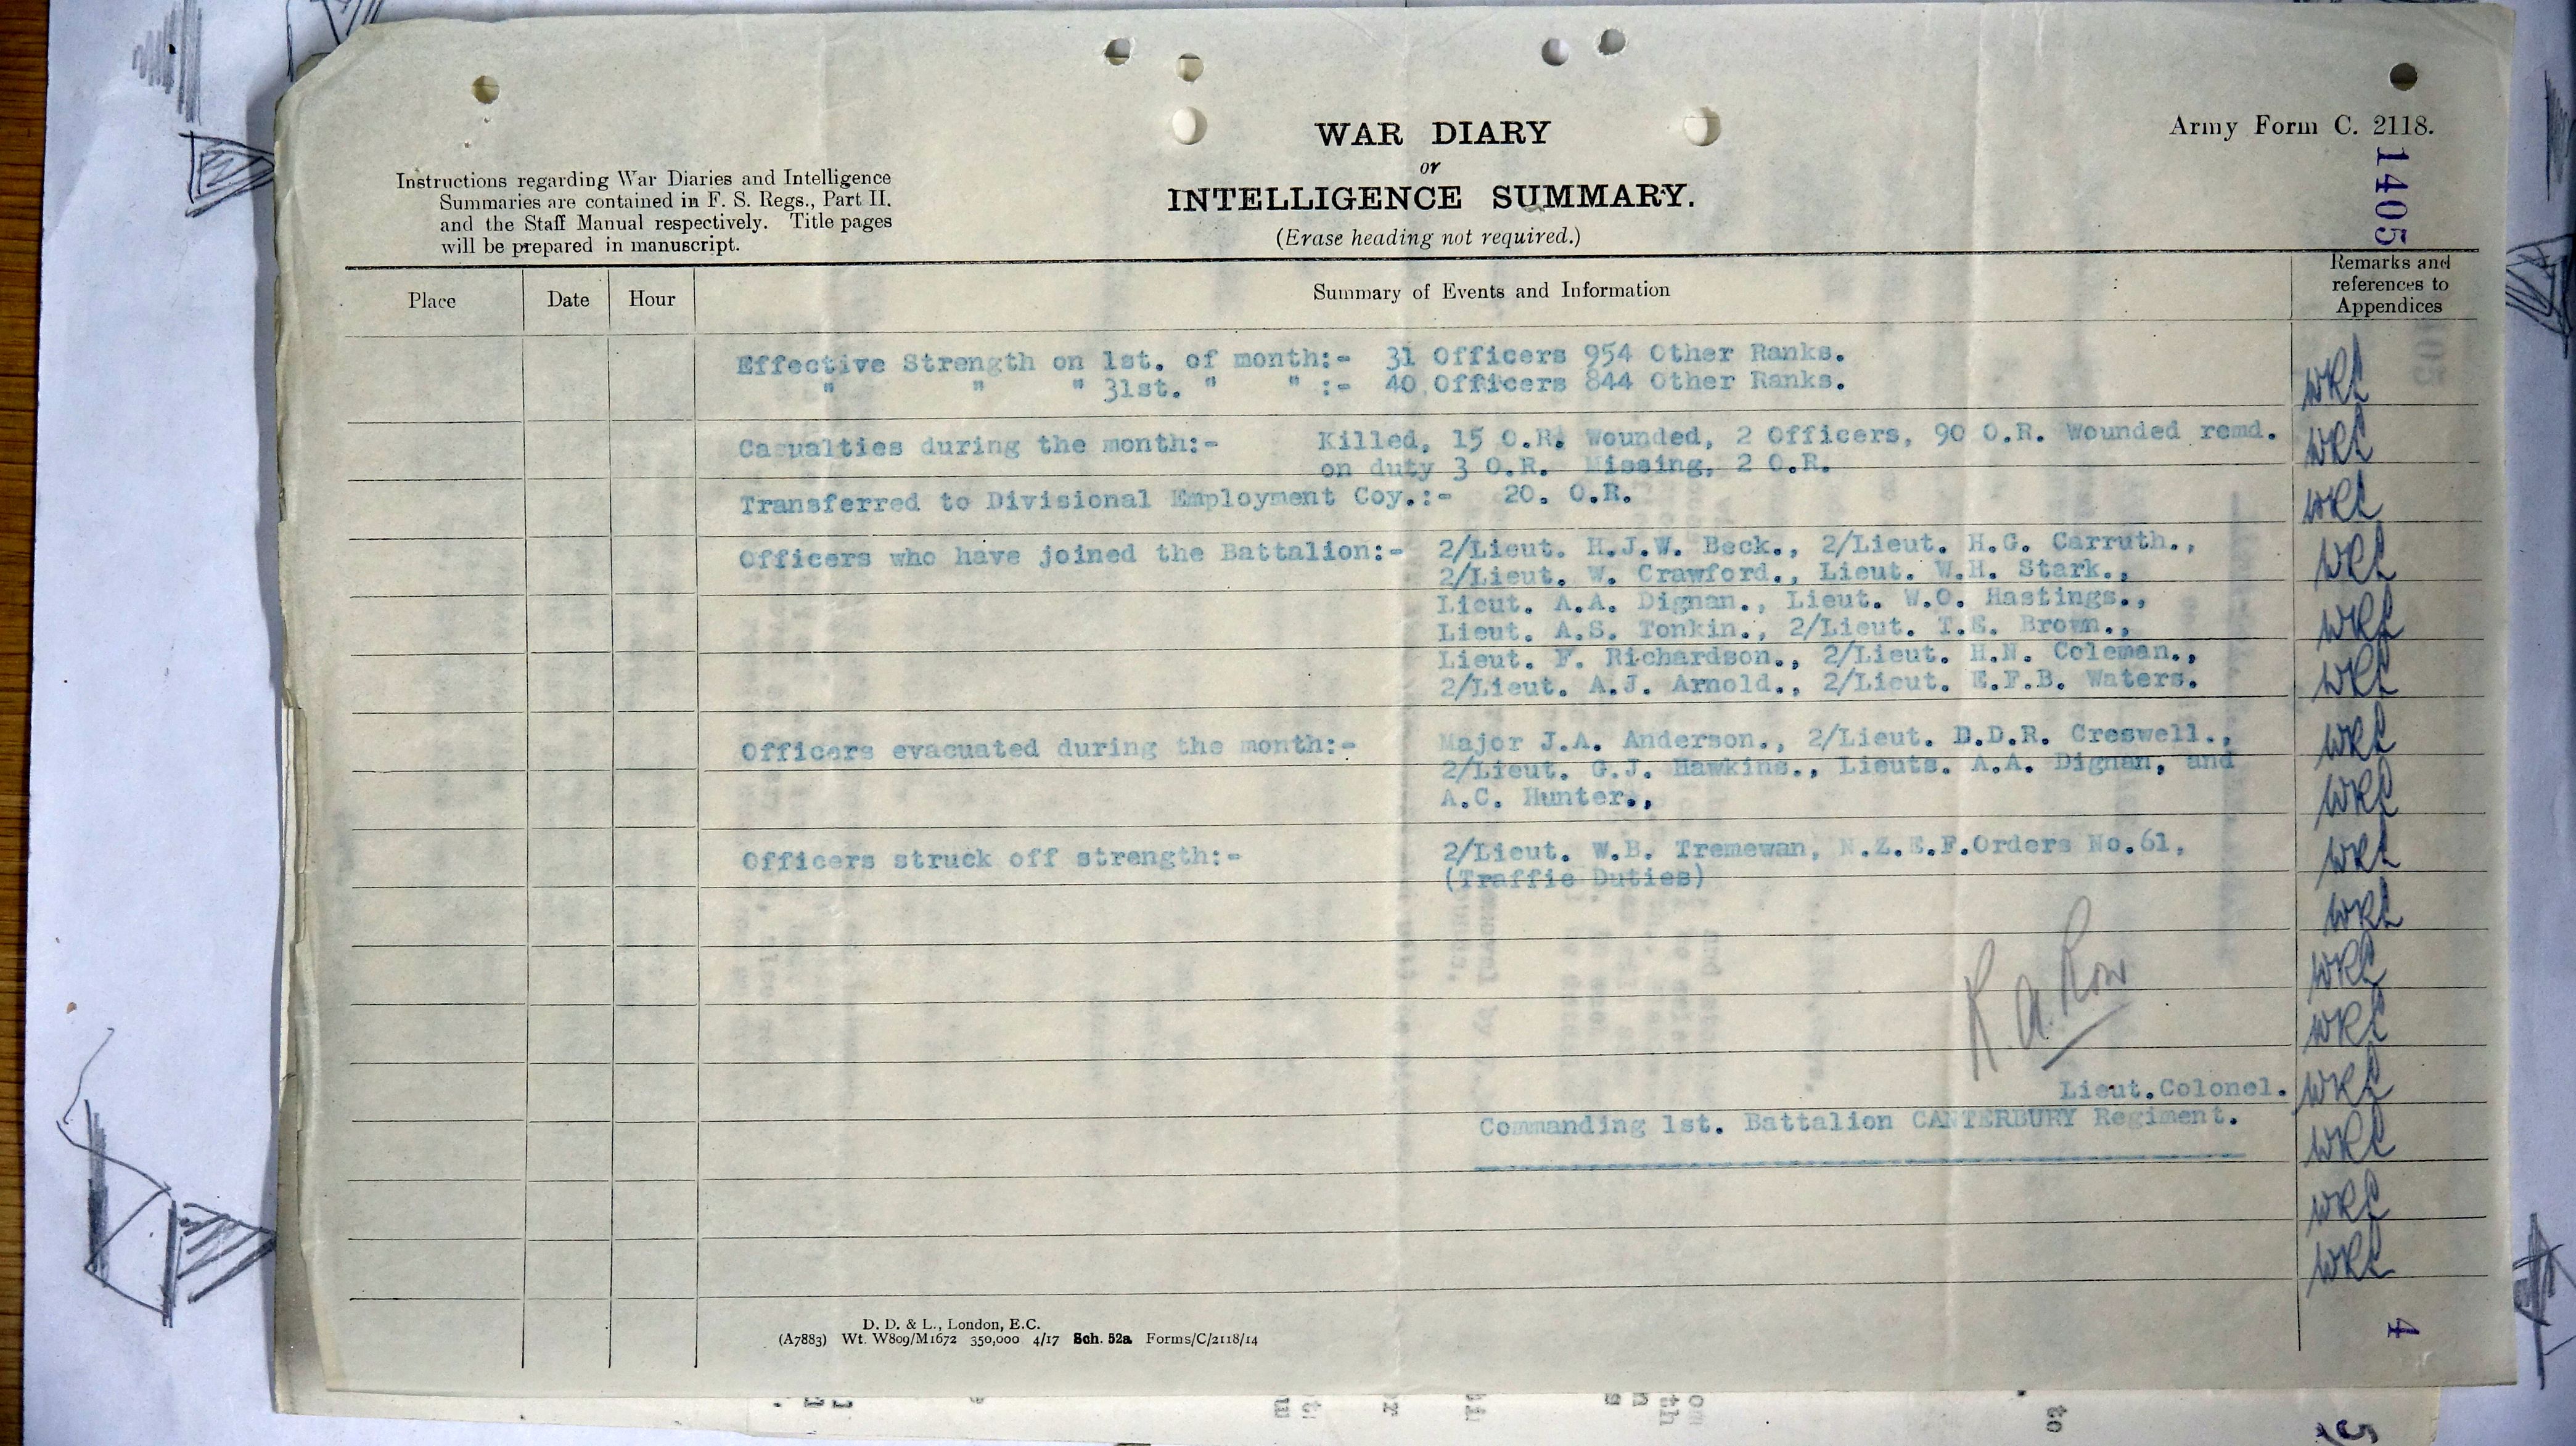 WAR DIARY
or
INTELLIGENCE SUMMARY.
(Erase heading not required.)
Army Form C. 2118.
1405
Instructions regarding War Diaries and Intelligence
Summaries are contained in F. S. Regs., Part II.
and the Staff Manual respectively. Title pages
will be prepared in manuscript.
Place Date Hour Summary of Events and Information Remarks and
references to
Appendices
Effective Strength on 1st. of month:- 31 Officers 954 Other Ranks.
" " " 31st. " " :- 40 Officers 844 Other Ranks. WRL
Casualties during the month:- Killed, 15 O.R. Wounded, 2 Officers, 90 O.R. Wounded remd. WRL
on duty 3 O.R. Missing, 2 O.R.
Transferred to Divisional Employment Coy.:- 20. O.R. WRL
Officers who have joined the Battalion:- 2/Lieut. H.J.W. Beck., 2/Lieut. H.G. Carruth., WRL
2/Lieut. W. Crawford., Lieut. W.H. Stark.,
Lieut. A.A. Dignan., Lieut. W.O. Hastings.,
Lieut. A.S. Tonkin., 2/Lieut. T.E. Brown., WRL
Lieut. F. Richardson., 2/Lieut. H.N. Coleman.,
2/Lieut. A.J. Arnold., 2/Lieut. E.F.B. Waters. WRL
Officers evacuated during the month:- Major J.A. Anderson., 2/Lieut. D.D.R. Creswell., WRL
2/Lieut. G.J. Hawkins., Lieuts. A.A. Dignan, and
A.C. Hunter., WRL
Officers struck off strength:- 2/Lieut. W.B. Tremewan, N.Z.E.F.Orders No.61, WRL
(Traffic Duties)
WRL
WRL
R. a. Row
WRL
Lieut.Colonel. WRL
Commanding 1st. Battalion CANTERBURY Regiment. WRL
WRL
WRL
4
D. D. & L., London, E.C.
(A7883) Wt. W809/M1672 350,000 4/17 Sch. 52a Forms/C/2118/14
to
5